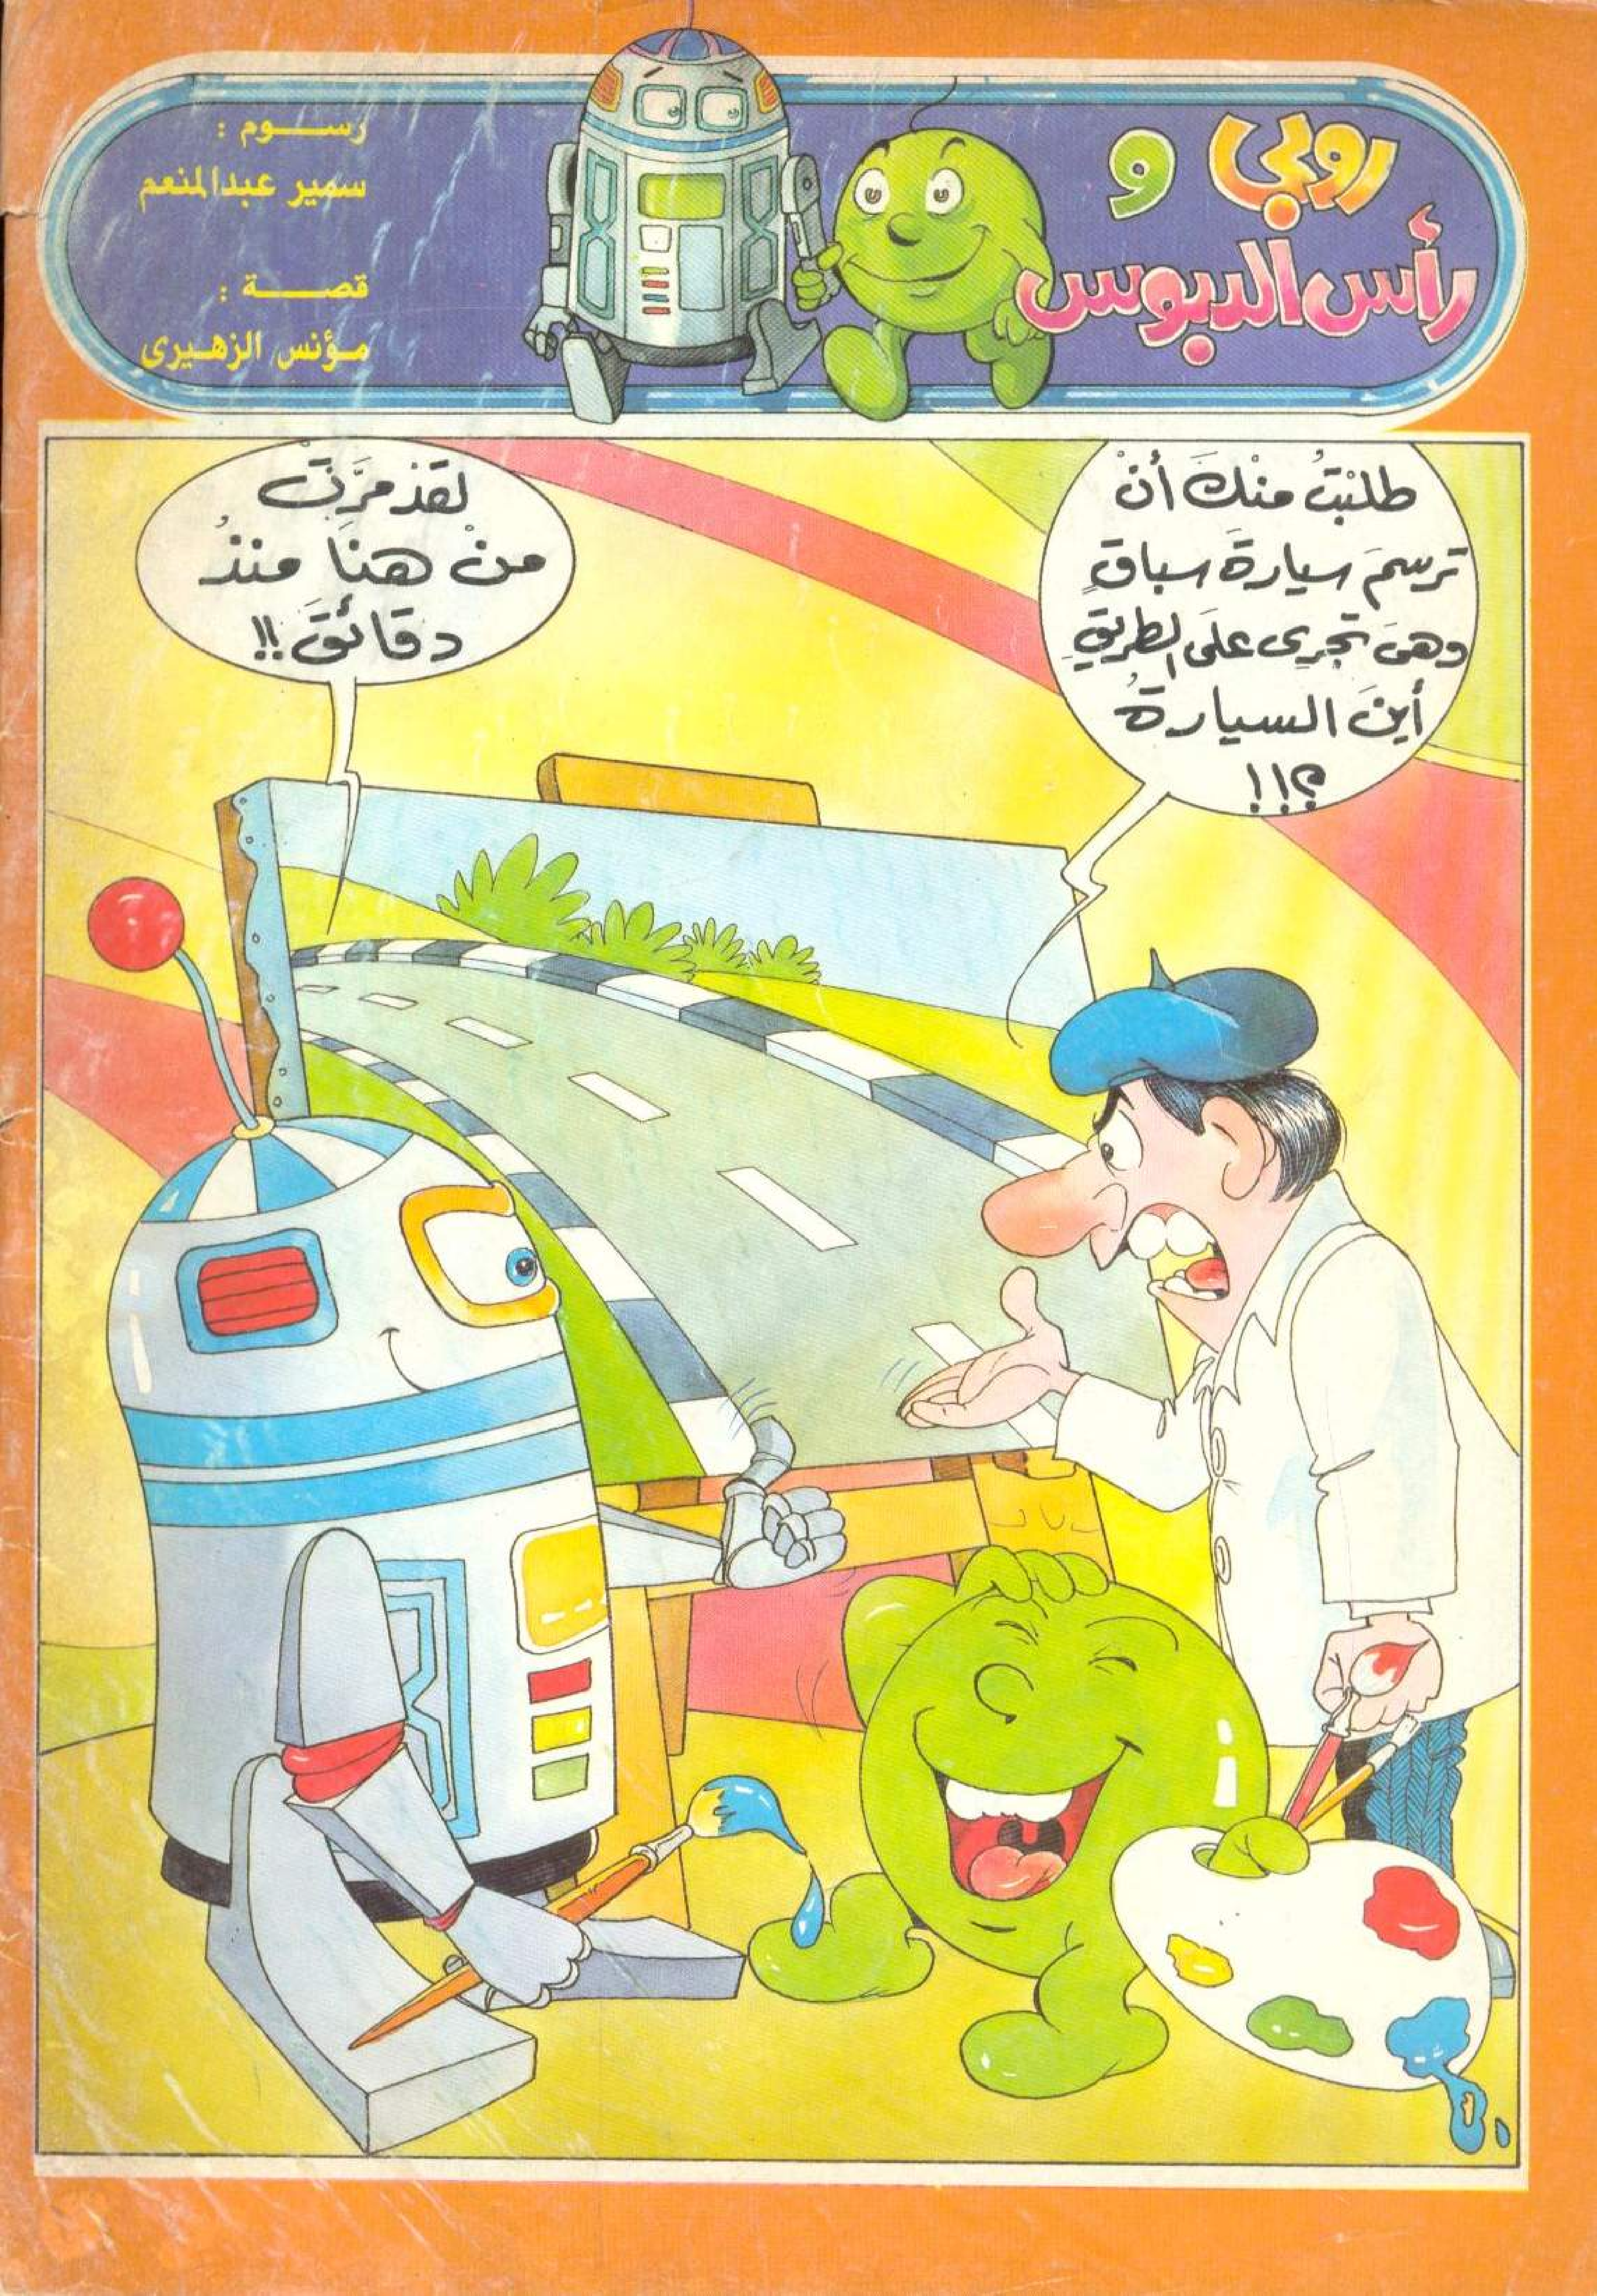 روبي و
رأس الدبوس
رســـوم :
سمير عبدالمنعم
قصـــــة :
مـؤنس الزهـيرى
طلبْتُ منْكَ أنْ
ترسمَ سيارةَ سباقٍ
وهىَ تجرِى علَى الطريقِ
أينَ السيارةُ
؟!!
لقدْ مرَّتْ
منْ هنَا منذُ
دقائقَ !!